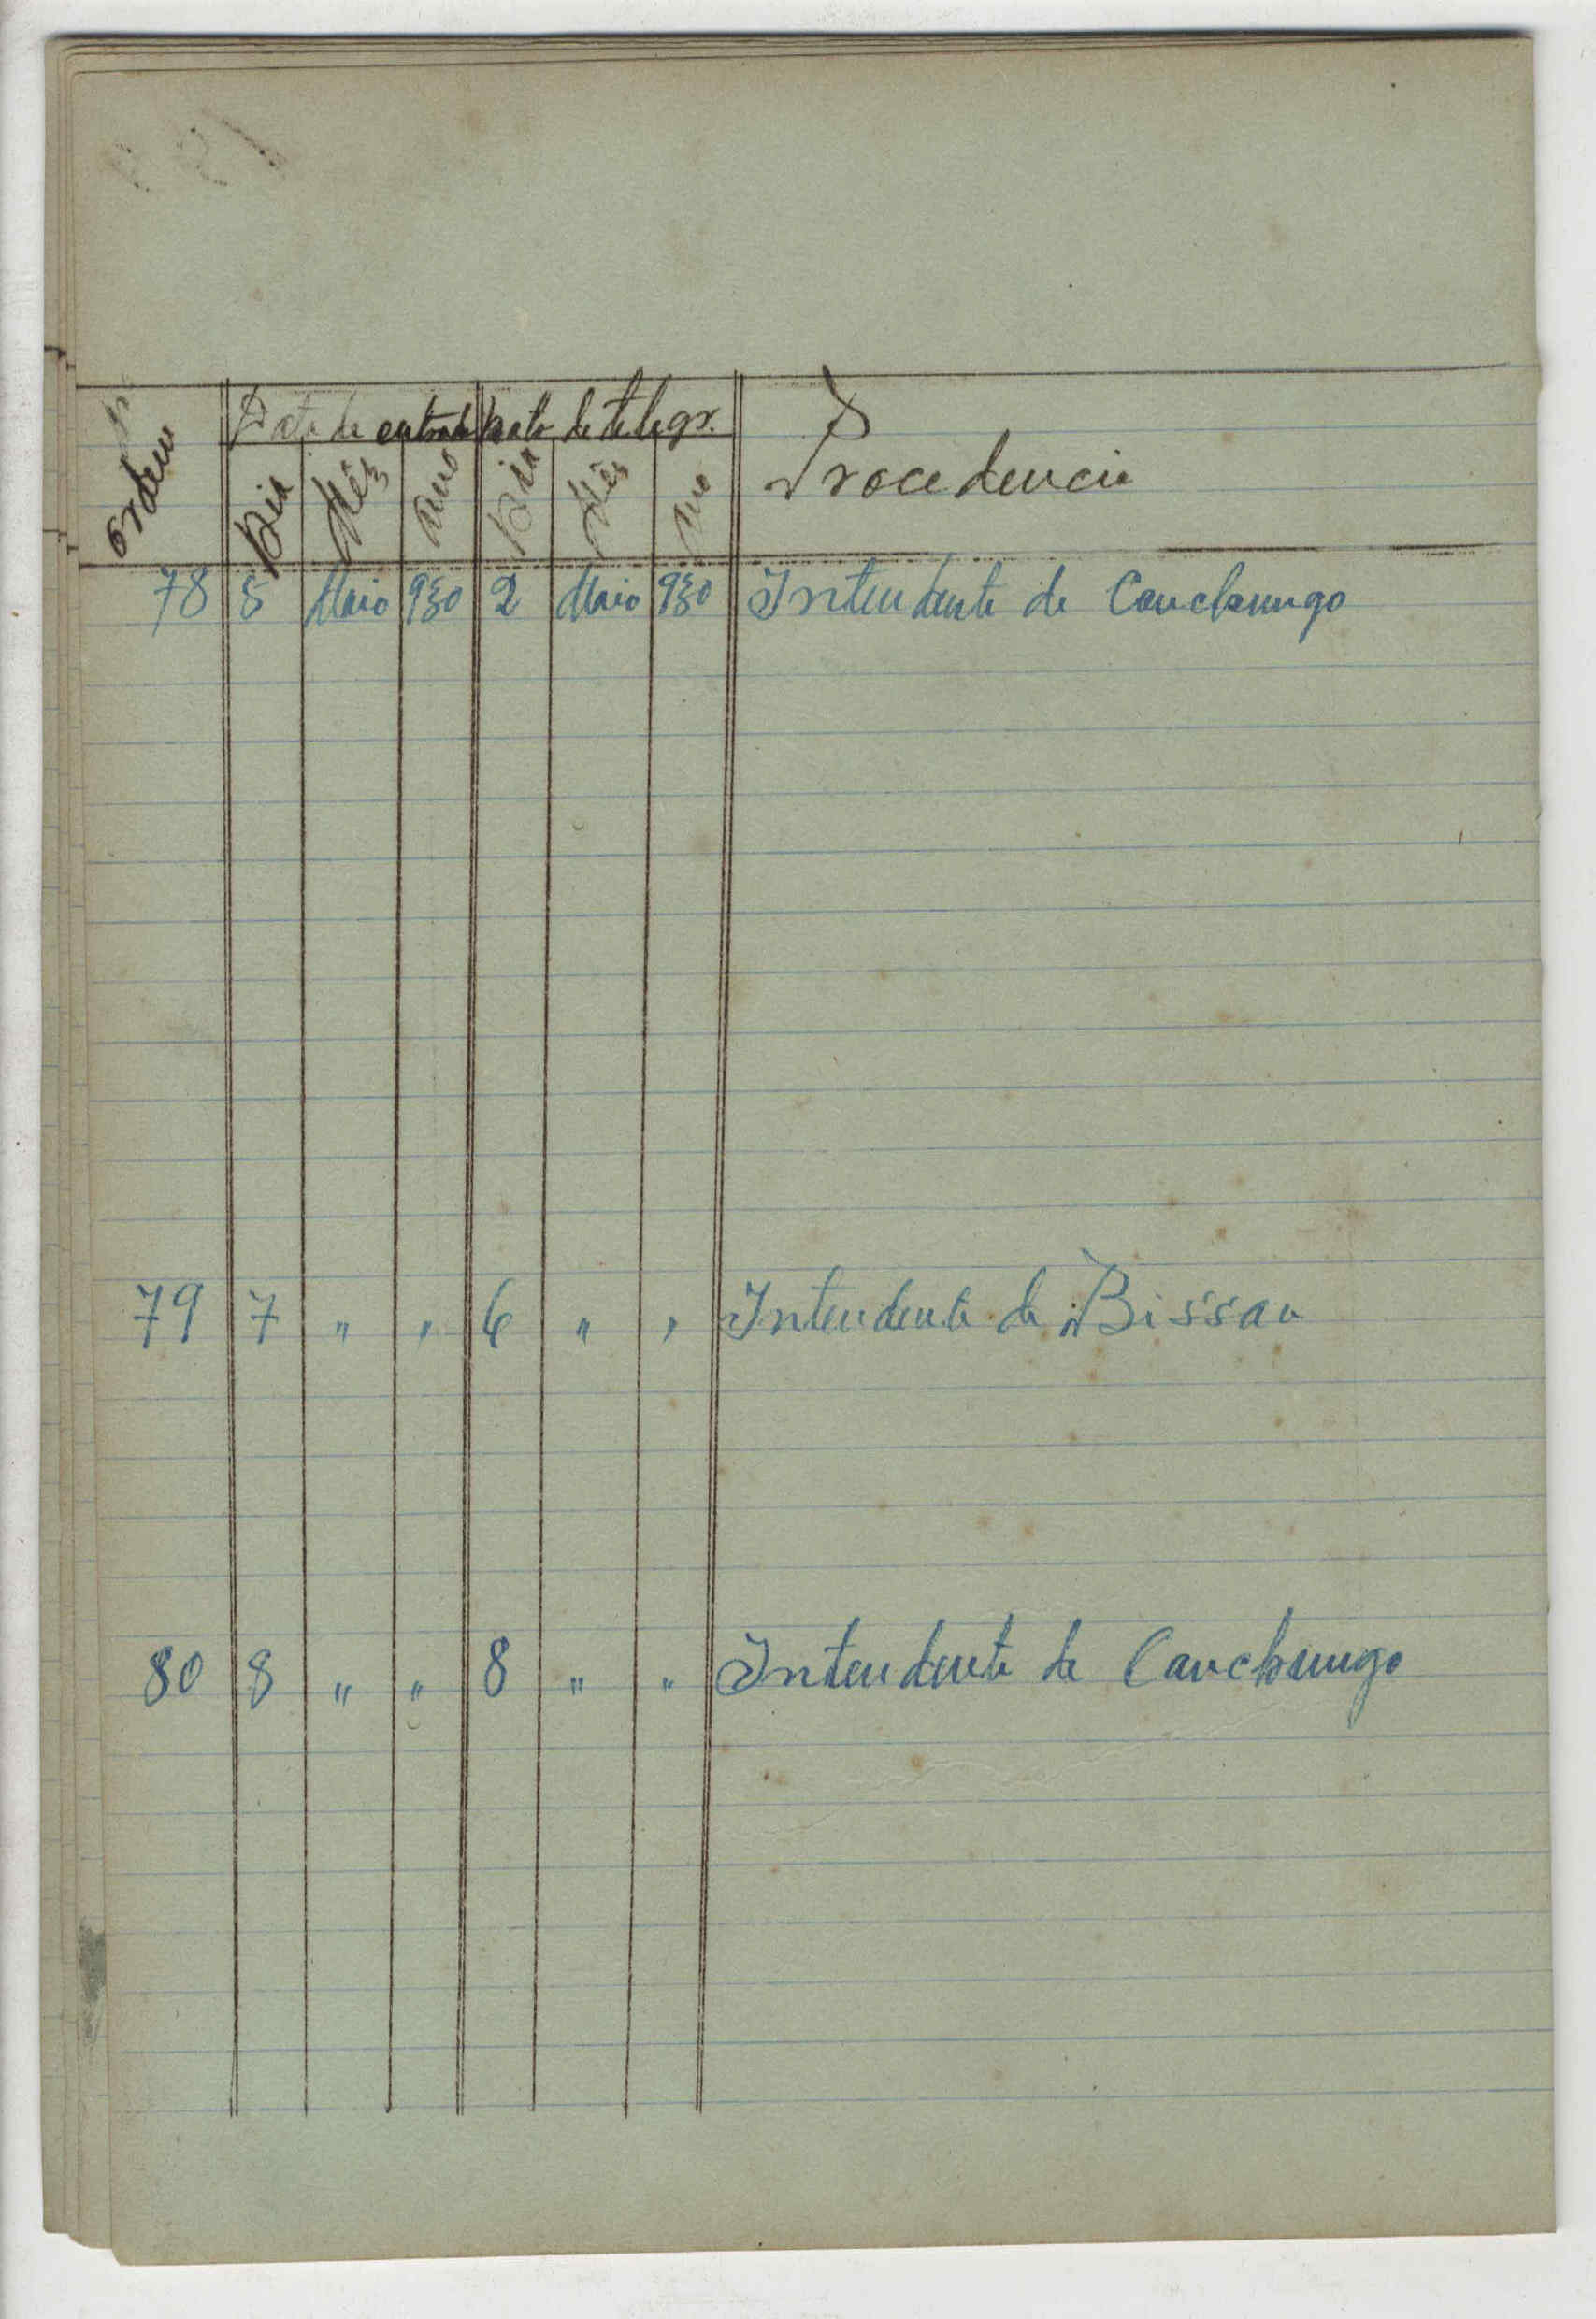 Data de entrada Data de telegr.
Nº Ordem Dia Mês Ano Dia Mês Ano Procedencia
78 5 Maio 930 2 Maio 930 Intendente de Canchungo
79 7 " " 6 " " Intendente de Bissau
80 8 " " 8 " " Intendente de Canchungo